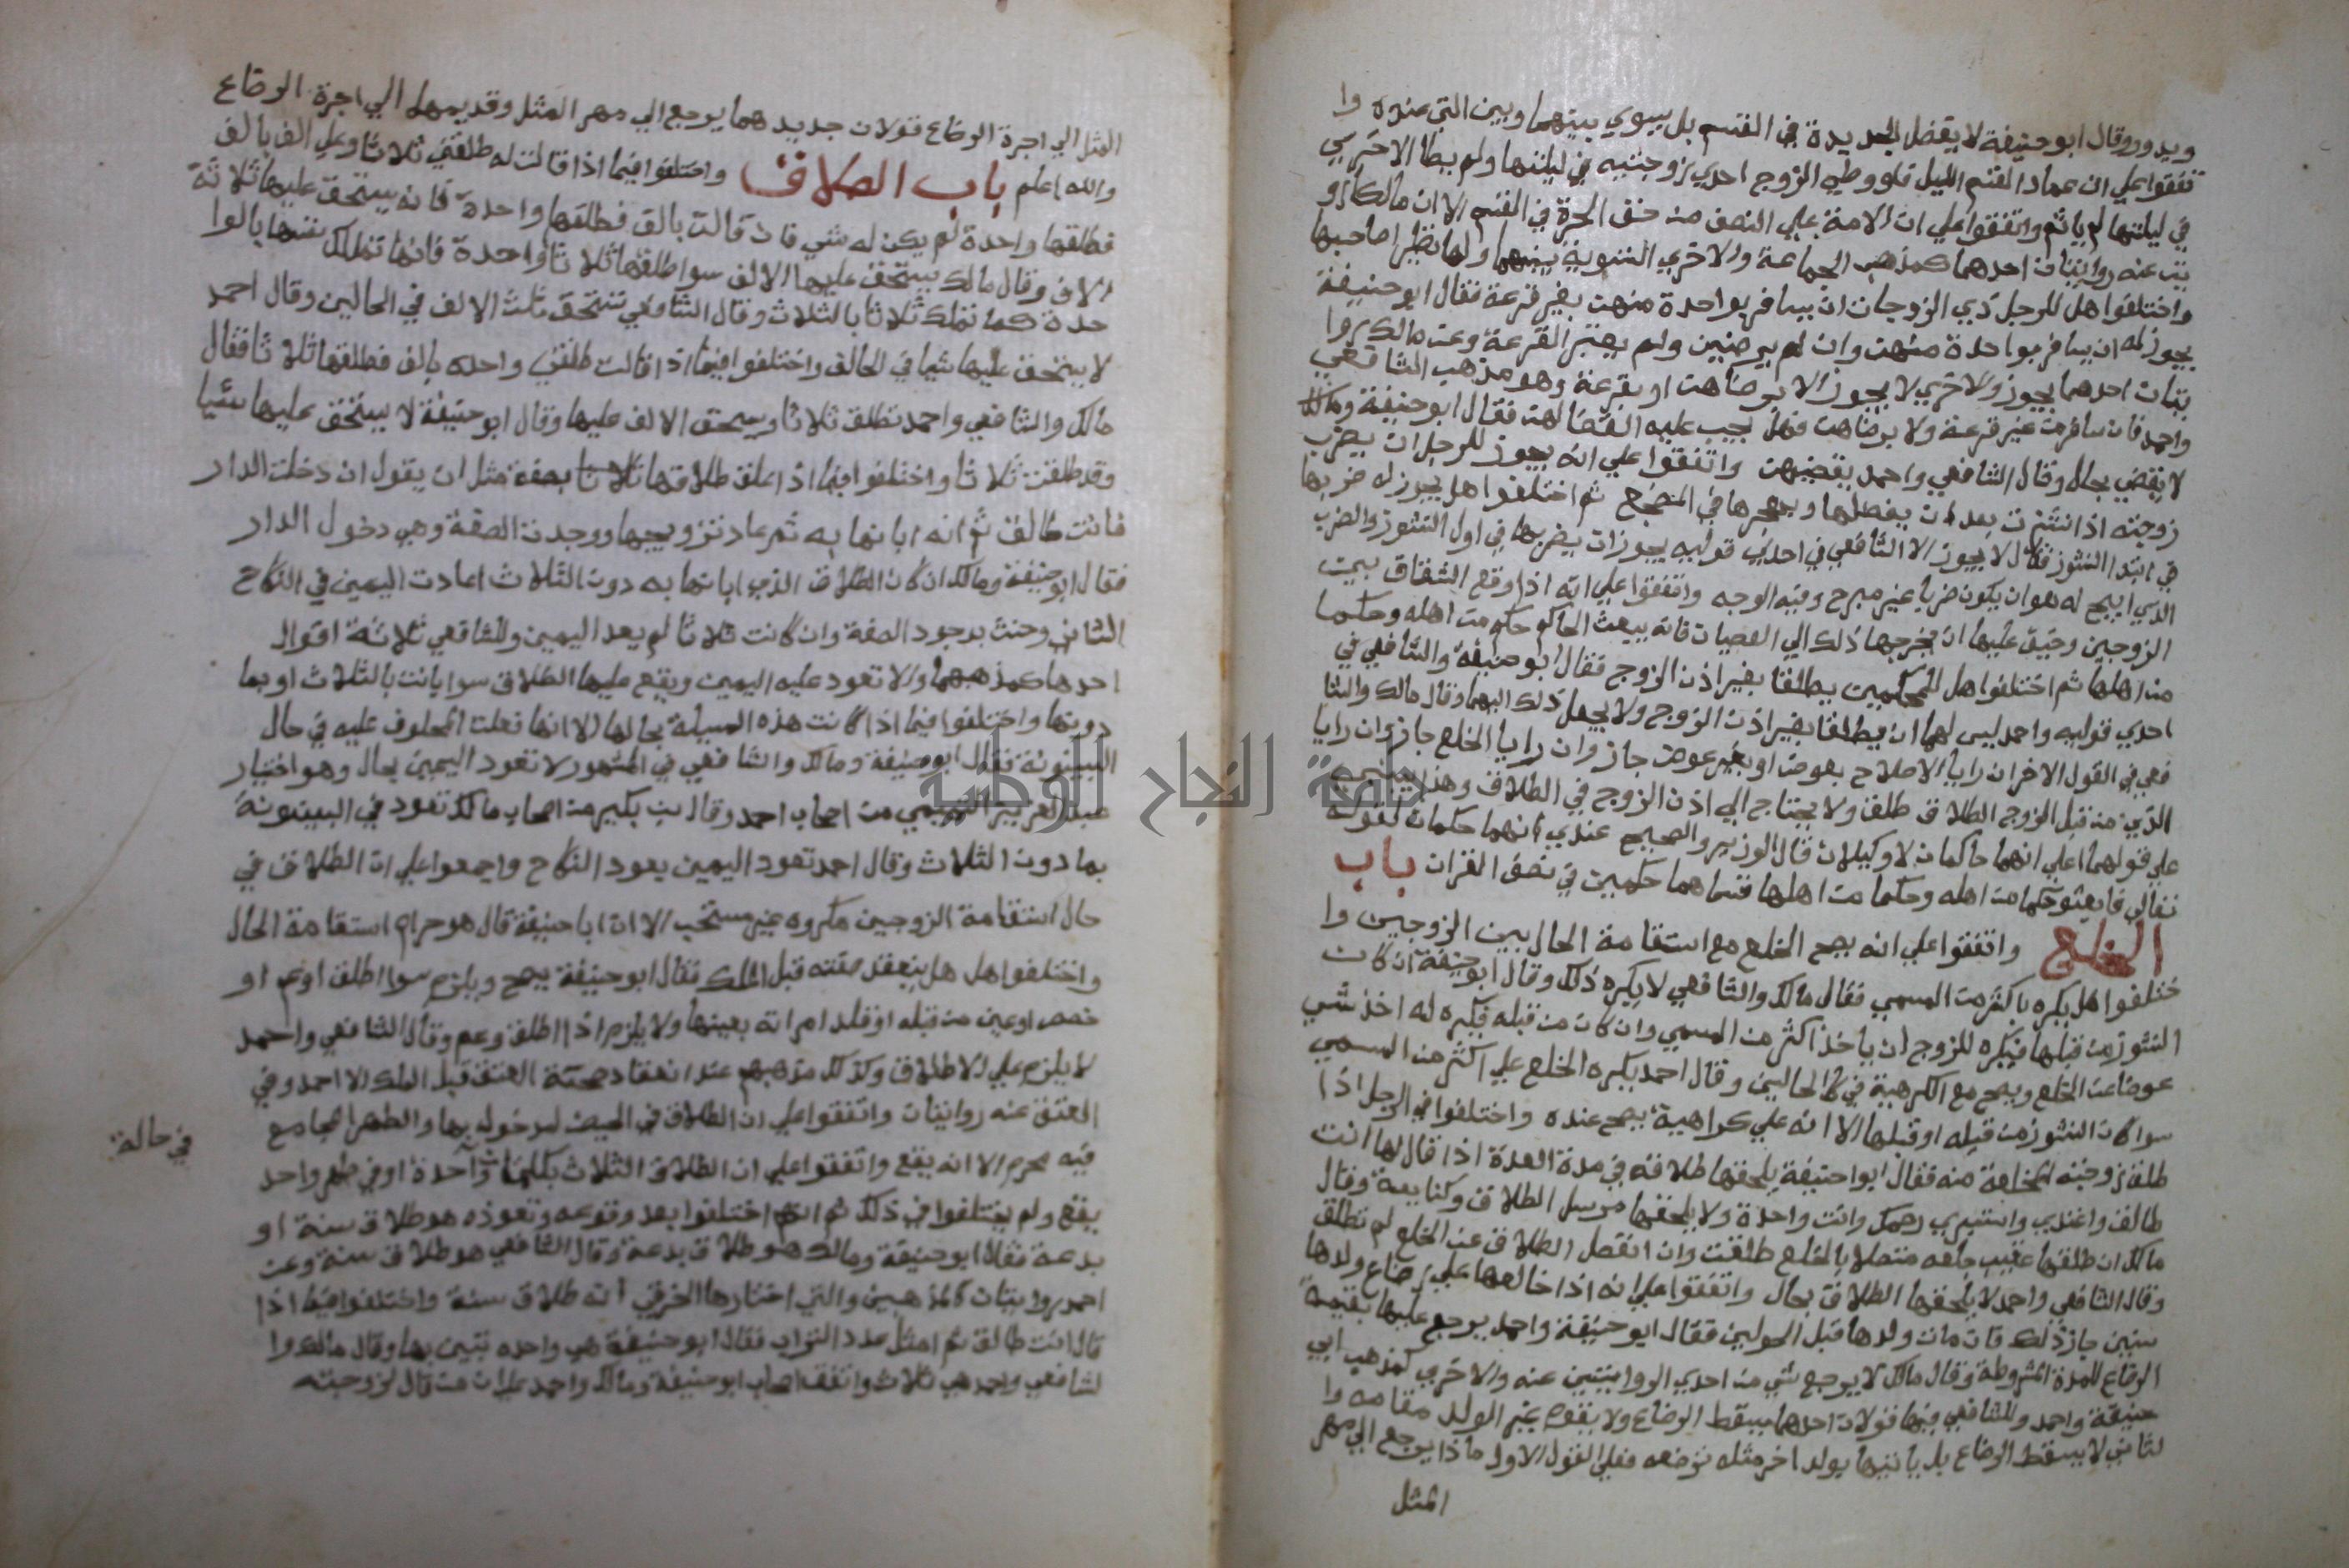 ويدور وقال ابوحنيفة لا يفضل الجديدة في القسم بل يسوي بينهما وبين التي عنده وا
تفقوا علي ان عماد القسم الليل فلو وطي الزوج احدي زوجتيه في ليلتها ولم يطا الاخري
في ليلتها لم ياثم واتفقوا علي ان الامة علي النصف من حق الحرة في القسم الا ان مالكا رو
يت عنه روايتان احدهما كمذهب الجماعة والاخري التسوية بينهما ولها نظيرا صاحبها
واختلفوا هل للرجل ذي الزوجات ان يسافر بواحدة منهن بغير قرعة فقال ابو حنيفة
يجوز له ان يسافر بواحدة منهن وان لم يرضين ولم يعتبر القرعة وعن مالك روا
يتان احدهما يجوز والاخري لا يجوز الا برضاهن او بقرعة وهو مذهب الشافعي
واحمد فان سافر من غير قرعة ولا برضاهن فهل يجب عليه القضا لهن فقال ابو حنيفة ومالك
لا يقضي بحال وقال الشافعي واحمد يقضيهن واتفقوا علي انه يجوز للرجل ان يضرب
زوجته اذا نشزت بعد ان يعضلها ويهجرها في المضجع ثم اختلفوا هل يجوز له ضربها
في ابتدا النشوز فقال لا يجوز الا الشافعي في احدي قوليه يجوز ان يضربها في اول النشوز والضرب
الذي ابيح له هو ان يكون ضربا غير مبرح وفيه الوجه واتفقوا علي انه اذا وقع الشقاق بين
الزوجين وخيف عليها ان يخرجها ذلك الي العصيان فانه يبعث الحاكم حكم من اهله وحكما
من اهلها ثم اختلفوا هل للحكمين يطلقا بغير اذن الزوج فقال ابو حنيفة والشافعي في
احدي قوليه واحمد ليس لهما ان يطلقا بغير اذن الزوج ولا يجعل ذلك اليهما وقال مالك والشا
فعي في القول الاخر ان رايا الاصلاح بعوض او بغير عوض جاز وان رايا الخلع جاز وان رايا
الذي من قبل الزوج الطلاق طلق ولا يحتاج الي اذن الزوج في الطلاق وهذا
علي قولهما علي انهما حاكمان لا وكيلان قال الوزير والصحيح عندي انهما حكمان لقوله
تعالي فابعثوا حكما من اهله وحكما من اهلها فسماهما حكمين في نص القران باب
الخلع واتفقوا علي انه يصح الخلع مع استقامة الحال بين الزوجين وا
ختلفوا هل يكره باكثر من المسمي فقال مالك والشافعي لا يكره ذلك وقال ابو حنيفة ان كان
النشوز من قبلها فيكره للزوج ان ياخذ اكثر من المسمي وان كان من قبله فيكره له اخذ شي
عوضا عن الخلع ويصح مع الكرهية في كلا الحالين وقال احمد يكره الخلع علي اكثر من المسمي
سوا كان النشوز من قبله او قبلها الا انه علي كراهية يصح عنده واختلفوا في الرجل اذا
طلق زوجته المختلعة منه فقال ابوا حنيفة يلحقها طلاقه في مدة العدة اذا قال لها انت
طالق واعتدي واستبري رحمك وانت واحدة ولا يلحقها مرسل الطلاق وكنايته وقال
مالك ان طلقها عقيب خلعه متصلا بالخلع طلقت وان انفصل الطلاق عن الخلع لم تطلق
وقال الشافعي واحمد لا يلحقها الطلاق بحال واتفقوا علي انه اذا خالعها علي رضاع ولدها
سنين جاز ذلك فان مات ولدها قبل الحولين فقال ابو حنيفة واحمد يرجع عليها بقيمة
الرضاع للمدة المشروطة وقال مالك لا يرجع بشي من احدي الروايتين عنه والاخري كمذهب ابي
حنيفة واحمد وللشافعي فيها قولان احدهما يسقط الرضاع ولا يقوم غير الولد مقامه وا
لثاني لا يسقط الرضاع بل ياتيها بولد اخر مثله ترضعه فعلي القول الاول ماذا يرجع الي مهر
المثل
المثل الي اجرة الرضاع قولان جديدهما يرجع الي مهر المثل وقديمهما الي اجرة الرضاع
والله اعلم باب الطلاق واختلفوا فيما اذا قالت له طلقني ثلاثا وعلي الف بالف
فطلقها واحدة لم يكن له شي فان قالت بالف فطلقها واحدة فانه يستحق عليها ثلاثة
الاف وقال مالك يستحق عليها الالف سوا طلقها ثلاثا او احدة فانها تملك نفسها بالوا
حدة كما تملك ثلاثا بالثلاث وقال الشافعي تستحق ثلث الالف في الحالين وقال احمد
لا يستحق عليها شيا في الحالف واختلفوا فيما اذا قالت طلقني واحده بالف فطلقها ثلاثا فقال
مالك والشافعي واحمد تطلق ثلاثا ويستحق الالف عليها وقال ابو حنيفة لا يستحق عليها شيا
وقد طلقت ثلاثا واختلفوا فيما اذا علق طلاقها ثلاثا بصفة مثل ان يقول ان دخلت الدار
فانت طالق ثم انه ابانها به ثم عاد تزويجها ووجدت الصفة وهي دخول الدار
فقال ابو حنيفة ومالك ان كان الطلاق الذي ابانها به دون الثلاث اعادت اليمين في النكاح
الثاني وحنث بوجود الصفة وان كانت ثلاثا لم يعد اليمين وللشافعي ثلاثة اقوال
احدها كمذهبهما والا تعود عليه اليمين ويقع عليها الطلاق سوا بانت بالثلاث او بما
دونها واختلفوا فيما اذا كانت هذه المسيلة بحالها الا انها فعلت المحلوف عليه في حال
البينونة فقال ابو حنيفة ومالك والشافعي في المشهور لا تعود اليمين بحال وهو اختيار
عبد العزيز التميمي من اصحاب احمد وقال بن بكير من اصحاب مالك تعود في البينونة
بما دون الثلاث وقال احمد تعود اليمين بعود النكاح واجمعوا علي ان الطلاق في
حال استقامة الزوجين مكروه غير مستحب الا ان ابا حنيفة قال هو حرام استقامة الحال
واختلفوا هل هل ينعقد صفته قبل الملك فقال ابو حنيفة يصح ويلزم سوا اطلق او عم او
خصص او عين من قبله او قلد امراته بعينها ولا يلزم اذا اطلق وعم وقال الشافعي واحمد
لا يلزم علي الاطلاق وكذلك مذهبهم عند انعقاد صحتة العتق قبل الملك الا احمد وفي
العتق عنه روايتان واتفقوا علي ان الطلاق في الحيض لمدخول بها والطهر المجامع
في حالة
فيه محرم الا انه يقع واتفقوا علي ان الطلاق الثلاث بكلمات واحدة او في طهر واحد
يقع ولم يختلفوا في ذلك ثم انهم اختلفوا بعد وقوعه ونفوذه هو طلاق سنة او
بدعة فقال ابو حنيفة ومالك هو طلاق بدعة وقال الشافعي هو طلاق سنة وعن
احمد روايتان كالمذهبين والتي اختارها الخرقي انه طلاق سنة واختلفوا فيما اذا
قال انت طالق ثم امثل عدد التراب فقال ابو حنيفة هي واحده تبين بها وقال مالك وا
لشافعي واحمد هي ثلاث واتفق اصحاب ابو حنيفة ومالك واحمد علي ان من قال لزوجته
جامعة النجاح الوطنية